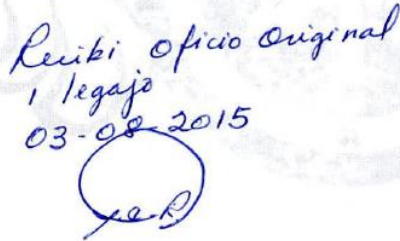 Recibi Oficio Original
1 legajo
03-08-2015